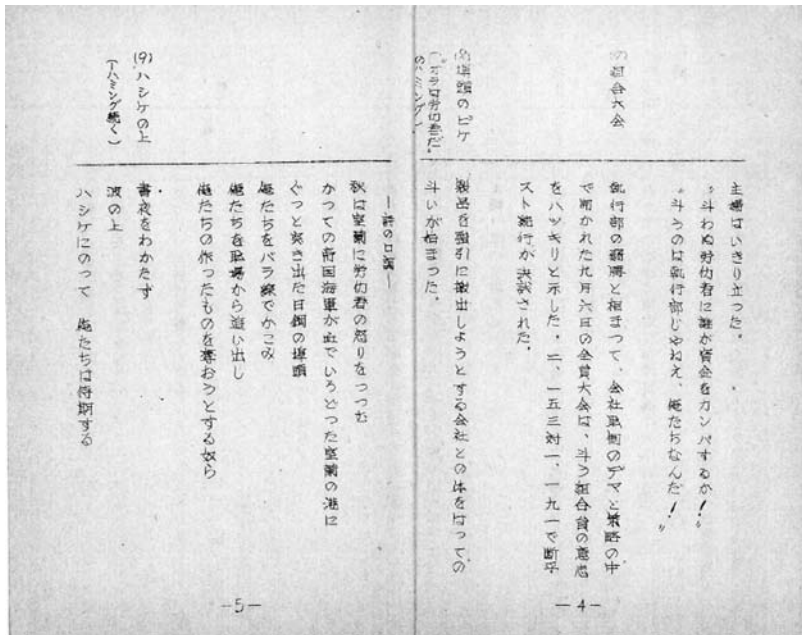 主場はいきり立った。
〝斗わぬ労仂者に誰が資金をカンパするか！〟
〝斗うのは執行部じゃねえ、俺たちなんだ！〟
(7)組合大会
執行部の弱腰と相まって、会社職制のデマと策略の中
で開かれた九月六日の全員大会は、斗う組合員の意志
をハッキリと示した。二、一五三対一、一九一で断乎
スト続行が決議された。
(8)埠頭のピケ
(〝オラは労仂者だ〟
のハミング)
製品を強引に搬出しようとする会社との体をはっての
斗いが始まった。
—4—
—詩の口調—
秋は室蘭に労仂者の怒りをつつむ
かつての帝国海軍が血でいろどった室蘭の港に
ぐっと突き出た日鋼の埠頭
俺たちをバラ線でかこみ
俺たちを職場から追い出し
俺たちの作ったものを奪おうとする奴ら
(9)ハシケの上
(ハミング続く)
昼夜をわかたず
波の上
ハシケにのって 俺たちは待期する
—5—